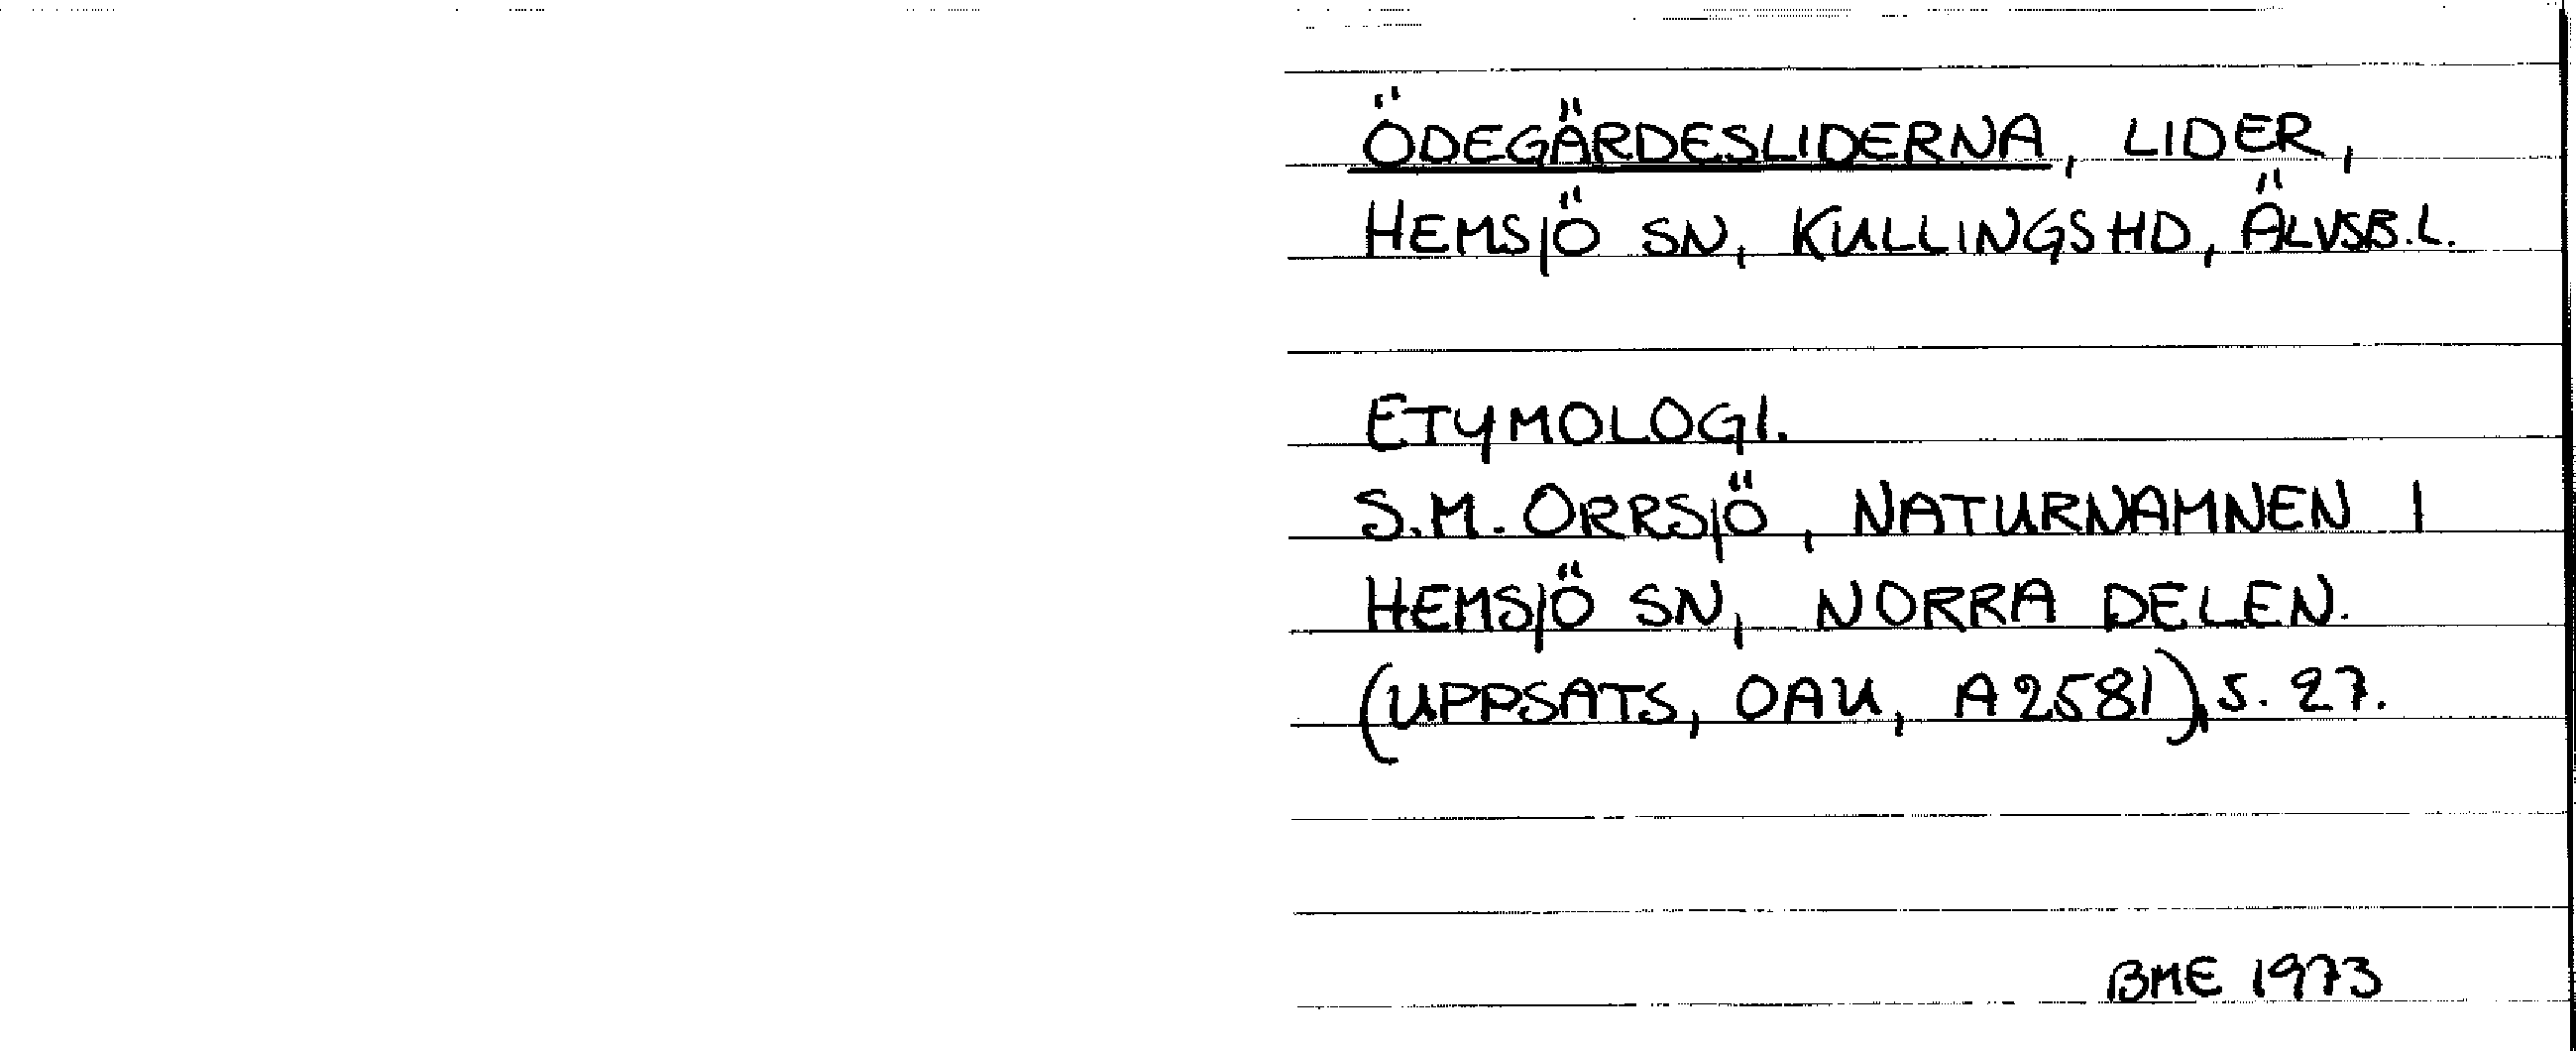 ÖDEGÄRDESLIDERNA, LIDER,
HEMSJÖ SN, KULLINGS HD, ÄLVSB.L.
ETYMOLOGI.
S.M. ORRSJÖ, NATURNAMNEN I
HEMSJÖ SN, NORRA DELEN.
(UPPSATS, OAU, A2581), S. 27.
BME 1973